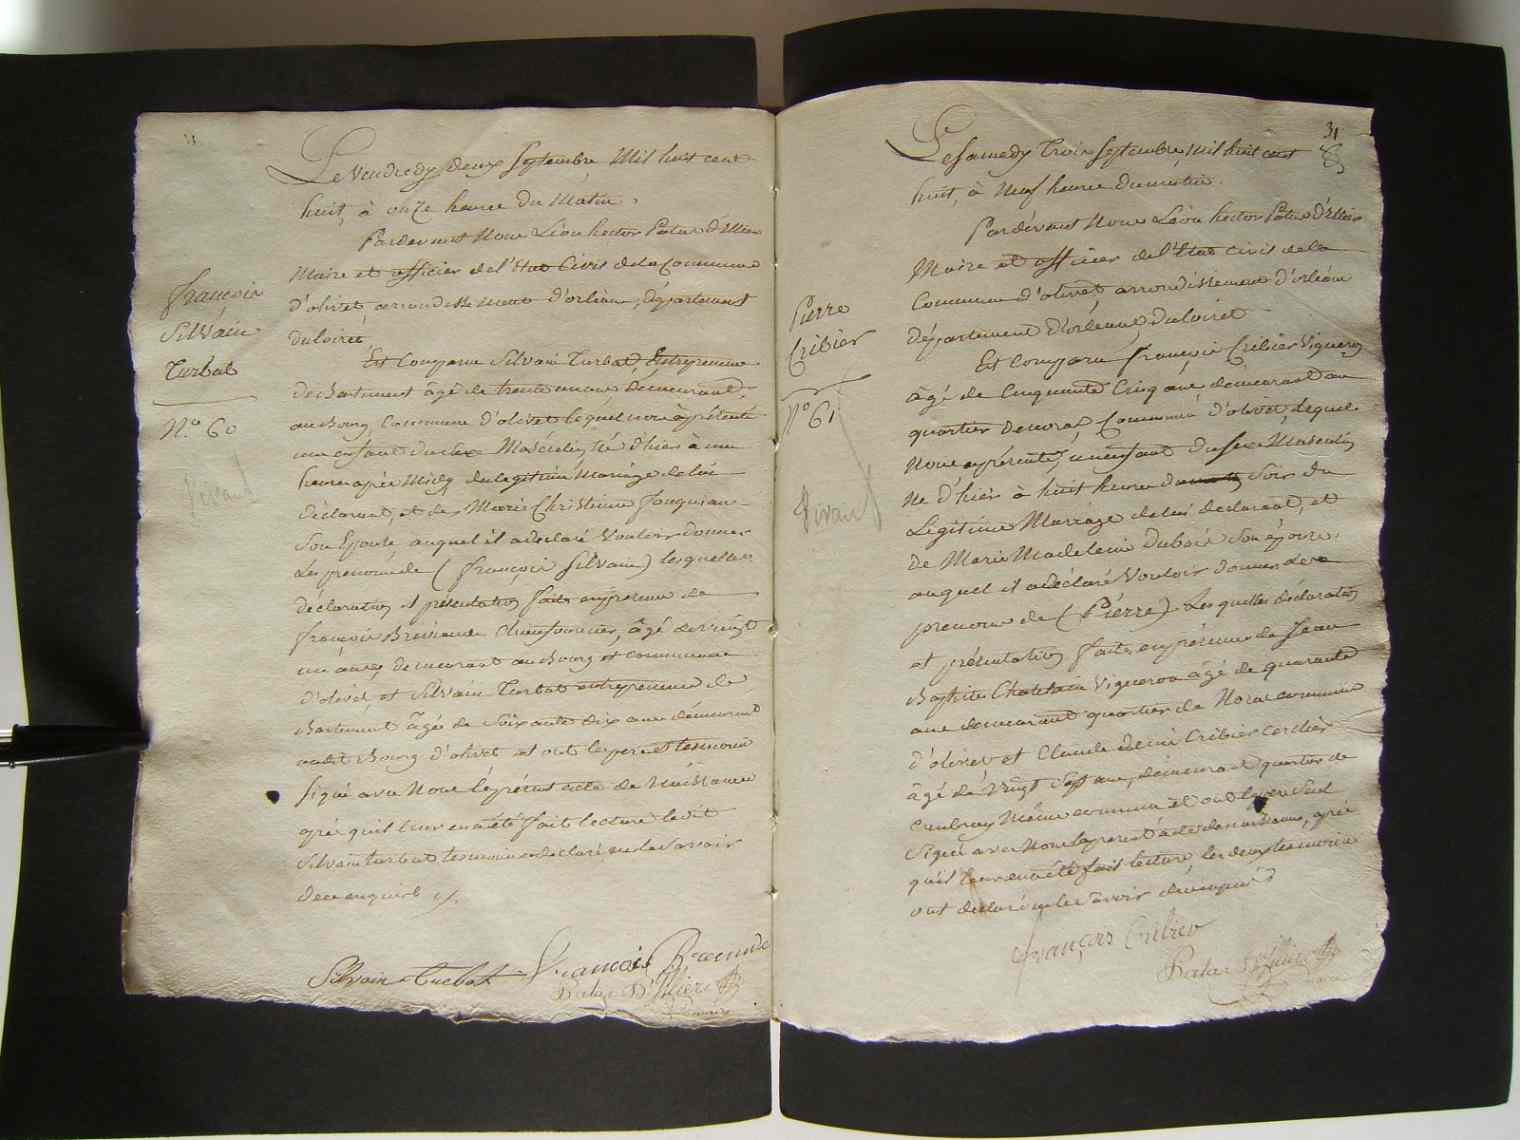 Le Vendredy deux Septembre Mil huit cent
huit, à onze heure du Matin,
Pardevant Nous Léon hector Patas d'Illiers
Maire et officier de l'état Civil de la Commune
d'olivet arrondissement d'orléans, département
du loiret
françois
Silvain
Turbat
N.º 60
Vivant
Est Comparu Silvain Turbat, Entrepreneur
de batiment âgé de trente un ans demeurant
au Bourg Commune d'olivet lequel nous à présenté
un enfant du Sexe Masculin, né d'hier à une
heure après Midy du legitime Mariage de lui
déclarant, et de Marie Christinne
Son Epouse auquel il a déclaré Vouloir donner
Les prenoms de (françois Silvain) lesquelles
déclaration et présentation faite en présence de
françois âgé de vingt
un ans, demeurant au Bourg et commune
d'olivet, et Silvain Turbat entrepreneur de
Bartiment âgé de Soixante dix ans démeurant
audit Bourg d'olivet et ont les pere et temoin
Signé avec Nous le présent acte de Naissance
après quil leur en a été fait lecture ledit
Silvain turbat temoin a déclaré ne le Savoir
de ce enquis ./.
Silvain Turbat François
Patas D'Illiers
maire
31
Le Samedy Trois Septembre Mil huit cent
huit, à Neuf heure du matin.
Pardévant Nous Léon hector Patas d'Illiers
Maire et officier de l'Etat civil de la
Commune d'olivet, arrondissement d'orléans
département d'orleans, du loiret
Pierre
Cribier
N.º 61
Vivant
Est Comparu françois Cribier Vigneron
âgé de Cinquante Cinq ans demeurant au
quartier de Commune d'olivet, lequel
Nous a présenté, un enfant du Sexe Masculin
Né d'hier à huit heure du Soir du
Légitime Mariage de lui declarant, et
de Marie Madeleine Dubois Son épouse
auquel il a déclaré Vouloir donner Le
prenoms de (Pierre). Les quelles déclaration
et présentation faite en présence de Jean
Baptiste Chatelain Vigneron âgé de quarante
ans demeurant quartier de commune
d'olivet et Claude Cribier cerclier
âgé de Vingt Sept ans, demeurant quartier de
Même commune et ont le pere Seul
Signé avec Nous le present acte de naissance, après
quil leur en a été fait lecture, les deux temoins
ont declaré ne le Savoir de ce enquis
François Cribier
Patas D'Illiers
maire